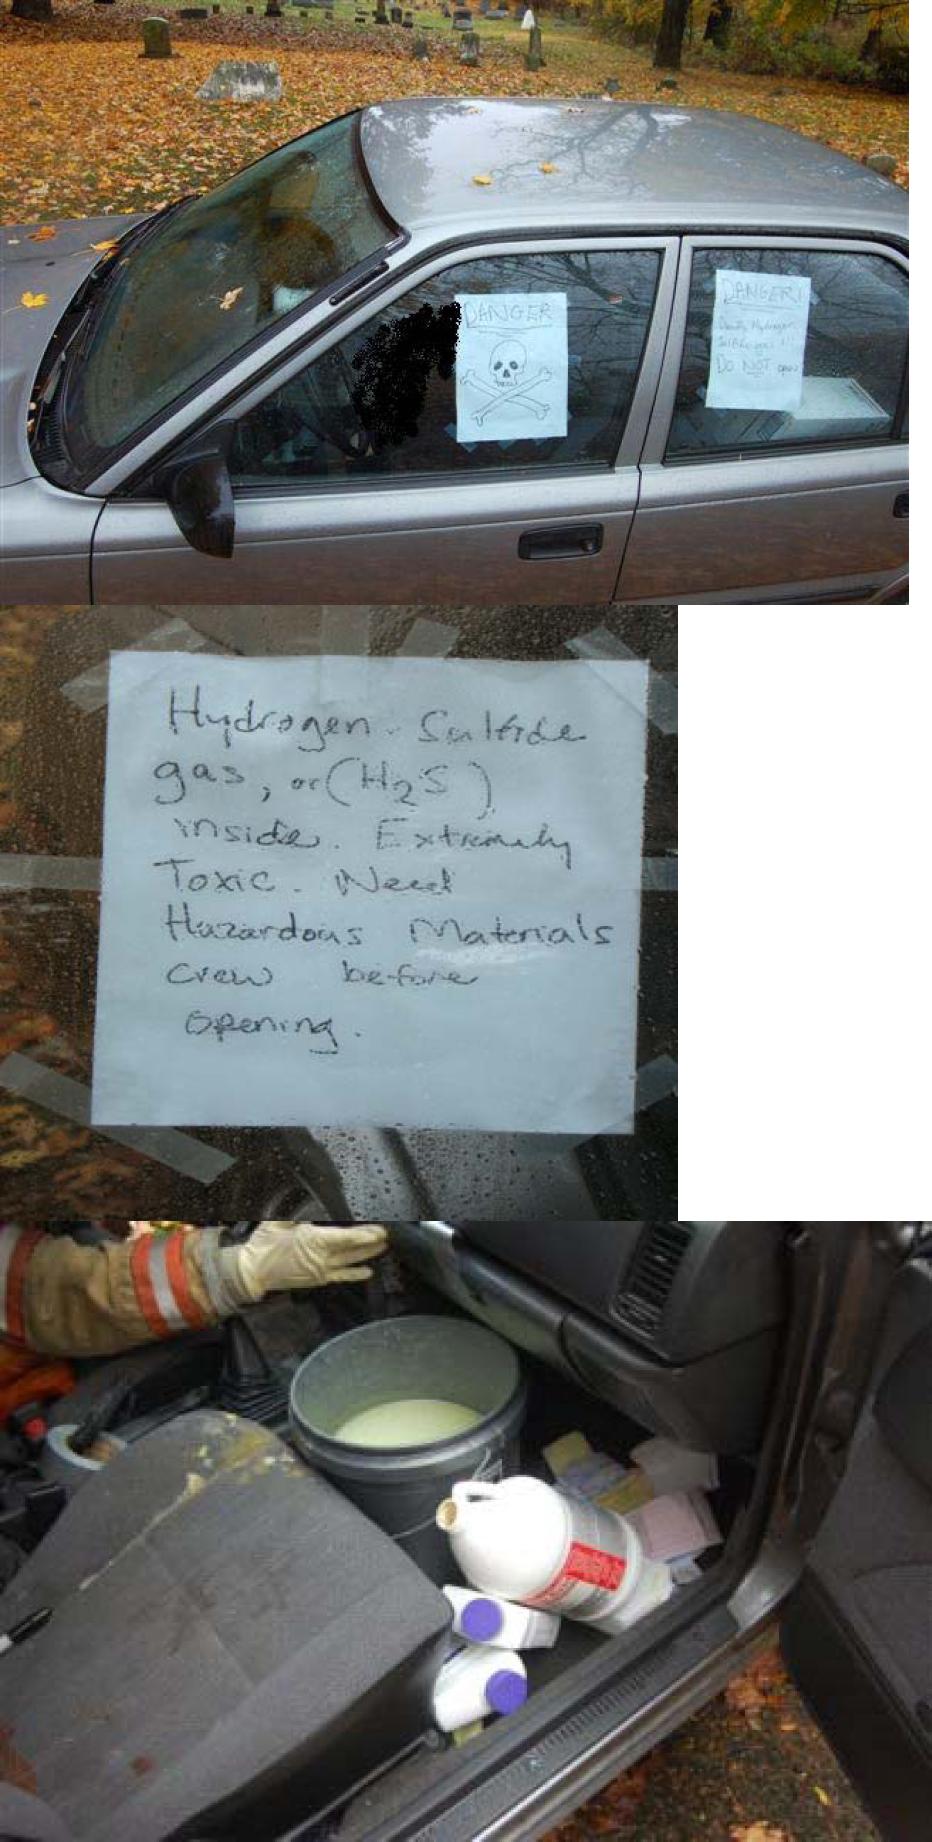 DANGER
DANGER!
Deadly Hydrogen
DO NOT open
Hydrogen Sulfide
gas, or (H2S)
inside. Extremely
Toxic. Need
Hazardous Materials
crew before
opening.